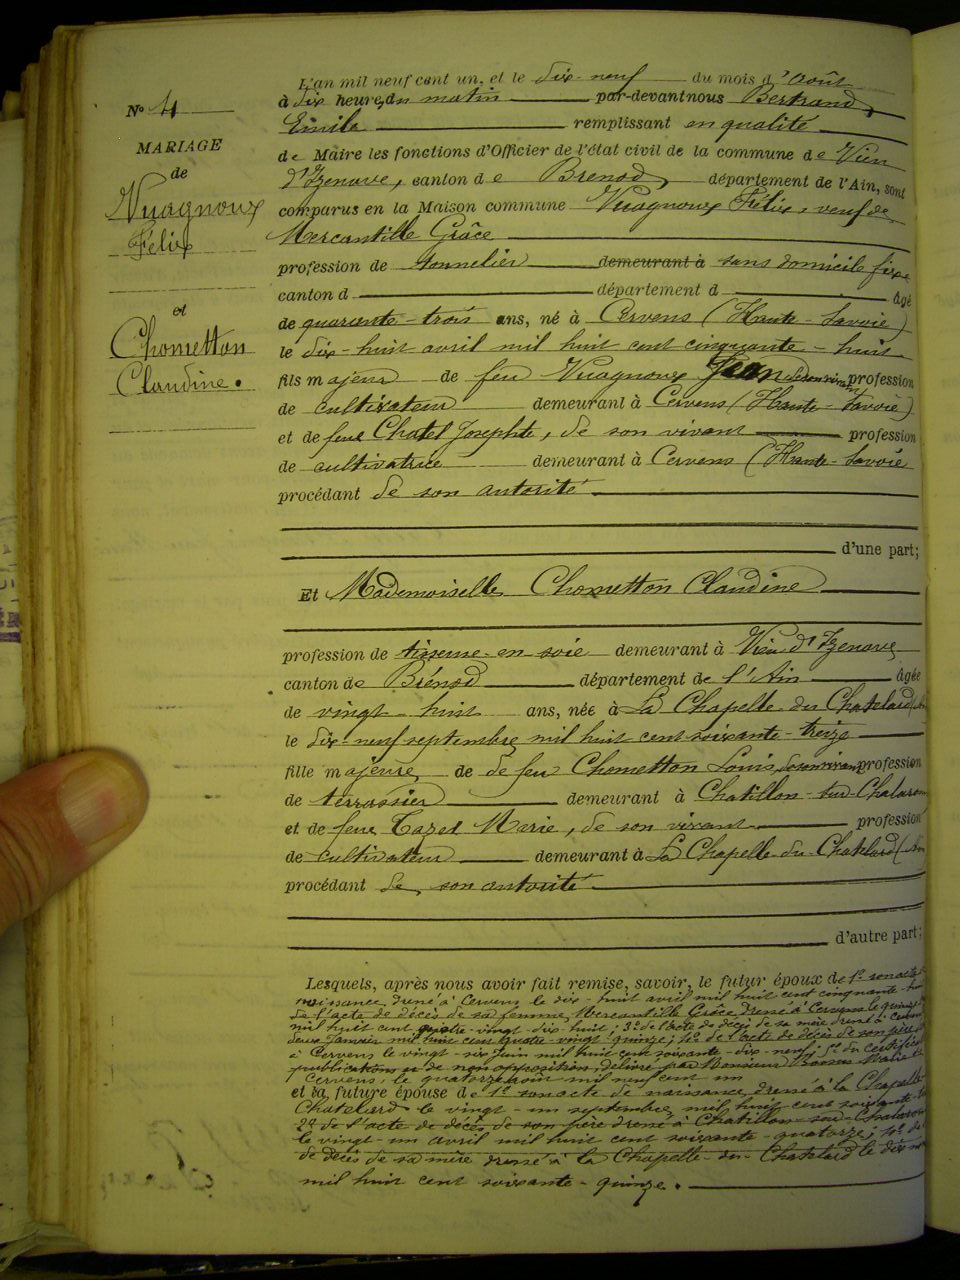 L'an mil neuf cent un, et le dix-neuf du mois d'Août
à dix heures du matin par-devant nous Bertrand,
Emile remplissant en qualité
de Maire les fonctions d'Officier de l'état civil de la commune de Vieu
d'Izenave, canton de Brenod, département de l'Ain, sont
comparus en la Maison commune Vuagnoux Félix, veuf de
Mercantille Grâce
profession de tonnelier demeurant à sans domicile fixe
canton d département d âgé
de quarante-trois ans, né à Cervens (Haute-Savoie)
le dix-huit avril mil huit cent cinquante-huit
fils majeur de feu Vuagnoux Jean de son vivant profession
de cultivateur demeurant à Cervens (Haute-Savoie)
et de feue Chatel Josephte, de son vivant profession
de cultivatrice demeurant à Cervens (Haute-Savoie
procédant de son autorité
d'une part;
Et Mademoiselle Chometton Claudine
profession de tisseuse en soie demeurant à Vieu d'Izenave
canton de Brénod département de l'Ain âgée
de vingt-huit ans, née à La Chapelle-du-Chatelard
le dix-neuf septembre mil huit cent soixante-treize
fille majeure de de feu Chometton Louis, de son vivant profession
de terrassier demeurant à Chatillon-sur-Chalaronne
et de feue Marie, de son vivant profession
de cultivateur demeurant à La Chapelle-du-Chatelard
procédant de son autorité
d'autre part;
Lesquels, après nous avoir fait remise, savoir, le futur époux de 1º son acte
naissance dressé à Cervens le dix-huit avril mil huit cent cinquante-huit
de l'acte de décès de sa femme Mercantille Grâce dressé à Cervens le quinze
mil huit cent quatre-vingt-dix-huit; 3º de l'acte de décès de sa mère dressé à Cervens
deux Janvier mil huit cent quatre-vingt-quinze; 4º de l'acte de décès de son père
à Cervens le vingt-six Juin mil huit cent soixante-dix-neuf; 5º du certificat
publications et de non opposition, délivré par Monsieur Maire
Cervens, le quatorze août mil neuf cent un
et la future épouse de 1º son acte de naissance dressé à la Chapelle
Chatelard le vingt-un septembre mil huit cent soixante-
2º de l'acte de décès de son père dressé à Chatillon-sur-Chalaronne
le vingt-un avril mil huit cent soixante-quatorze;
de décès de sa mère dressé à la Chapelle-du-Chatelard le dix
mil huit cent soixante-quinze.
Nº 4
MARIAGE
de
Vuagnoux
Félix
et
Chometton
Claudine.